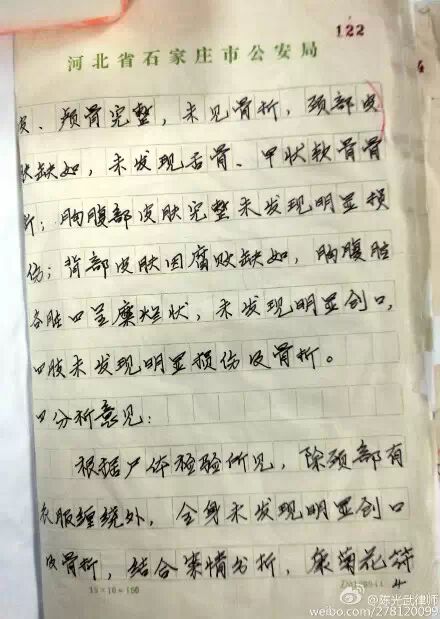 122
河北省石家庄市公安局
皮、颅骨完整，未见骨折，颈部皮
肤缺如，未发现舌骨、甲状软骨骨
折；胸腹部皮肤完整未发现明显损
伤；背部皮肤因腐败缺如，胸腹腔
各脏口呈糜烂状，未发现明显创口，
肢未发现明显损伤及骨折。
分析意见：
根据尸体检验所见，除颈部有
衣服缠绕外，全身未发现明显创口
及骨折，结合案情分析，菊花符
15×10=150
@陈光武律师
weibo.com/278120099